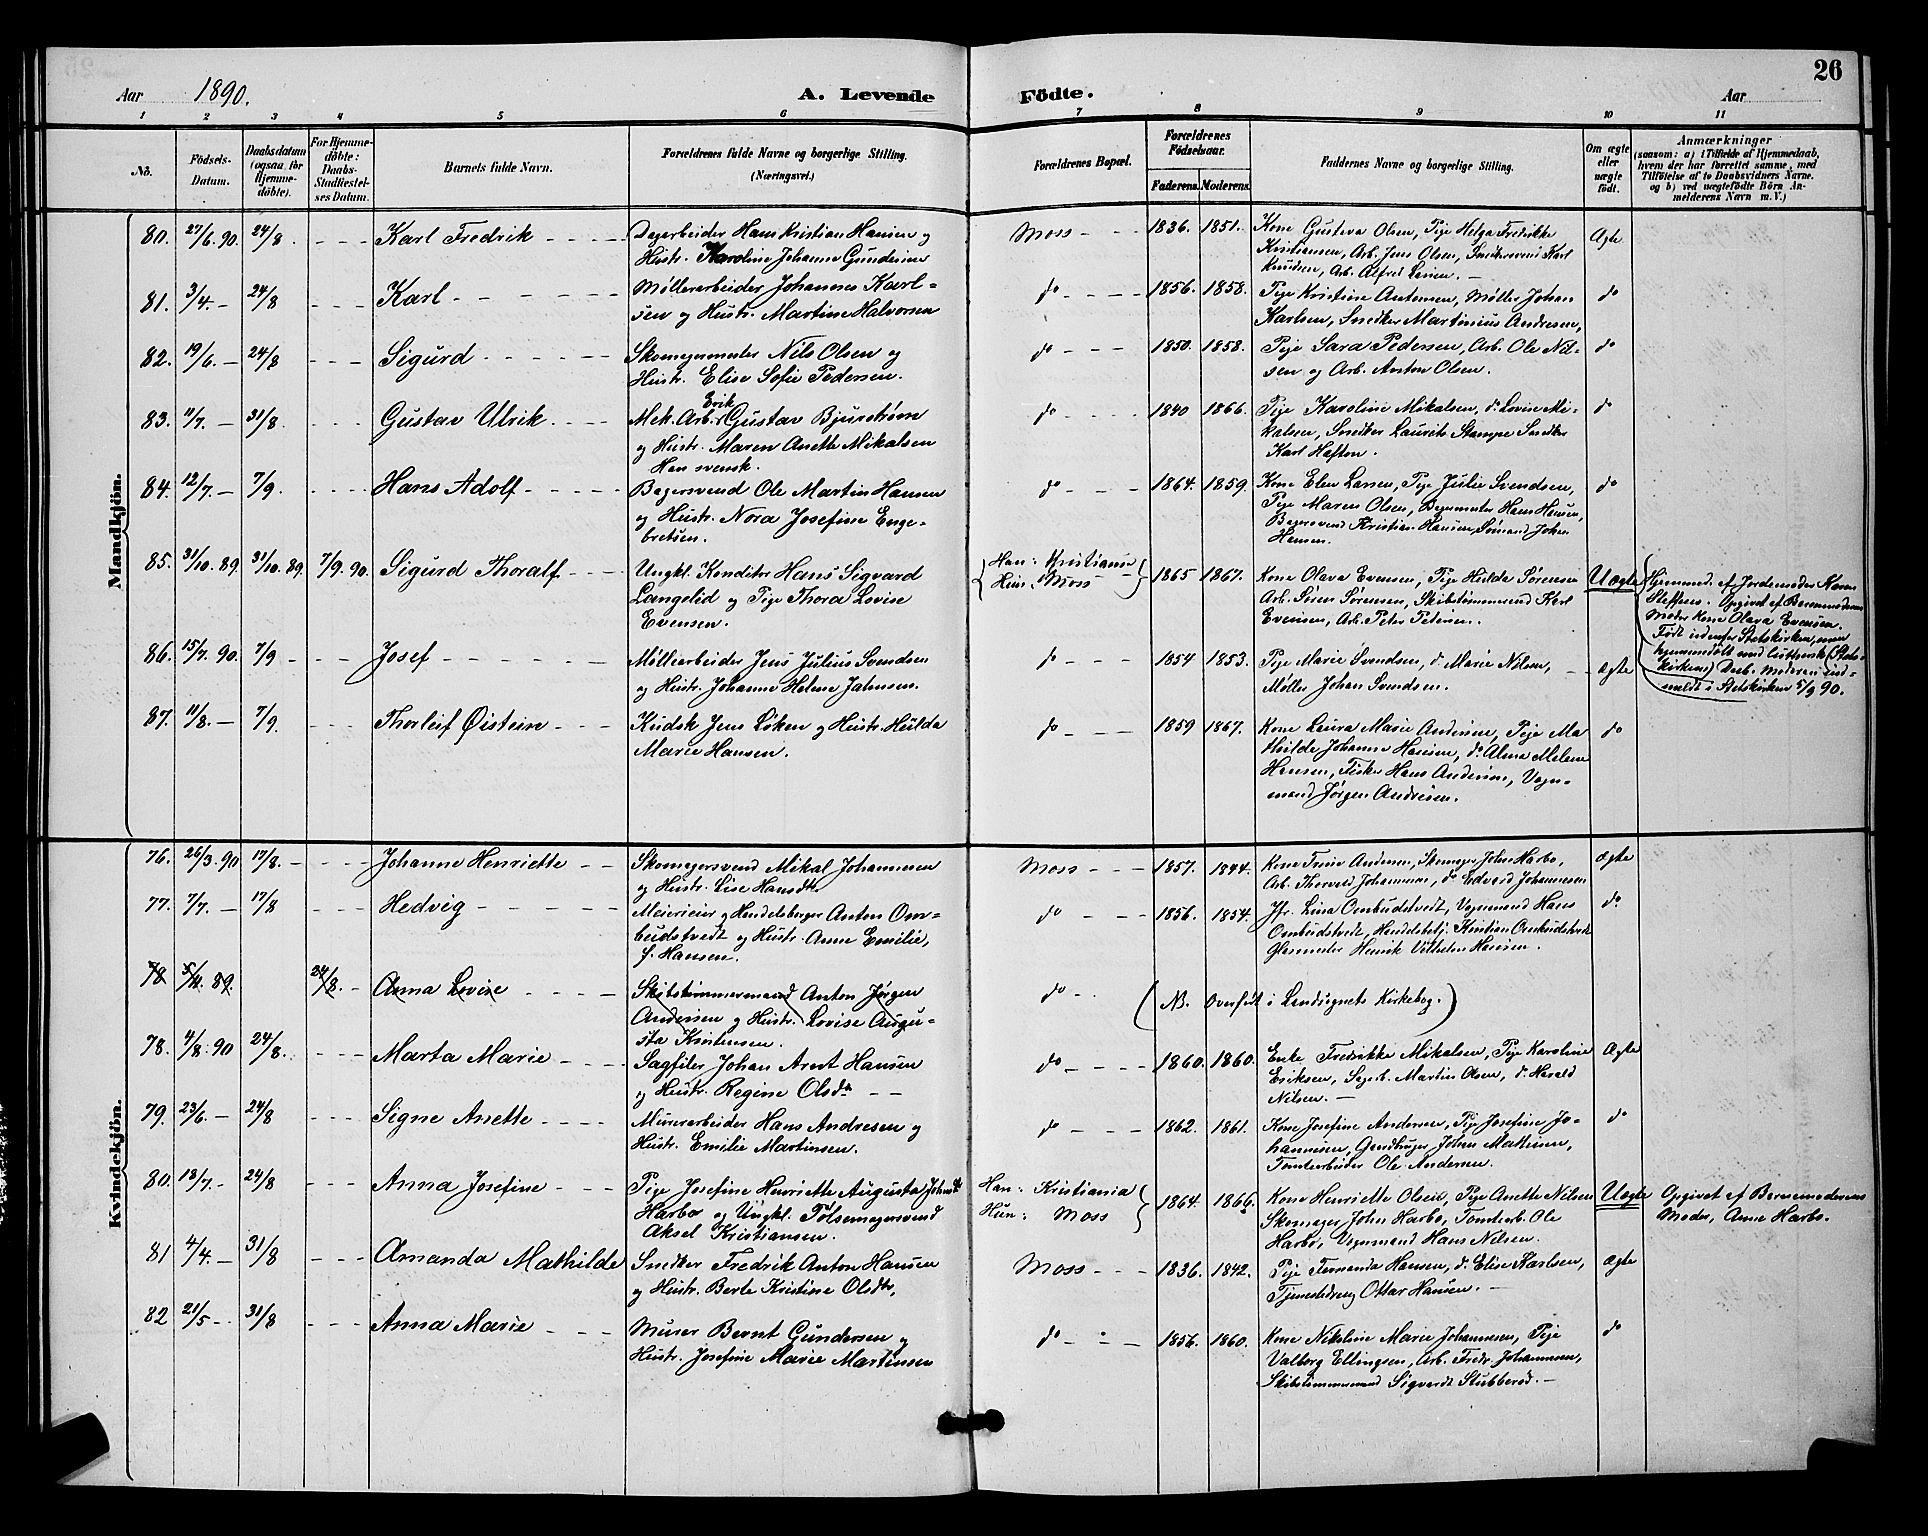 26
Aar 1890. A. Levende Födte. Aar
1 2 3 4 5 6 7 8 9 10 11
No. Födsels-Datum. Daabsdatum (ogsaa for Hjemmedöbte). For Hjemmedöbte: Daabs-Stadfæstelses Datum. Barnets fulde Navn. Forældrenes fulde Navne og borgerlige Stilling. (Næringsvei.) Forældrenes Bopæl. Forældrenes Födselsaar. Faderens. Moderens. Faddernes Navne og borgerlige Stilling. Om ægte eller uægte födt. Anmærkninger (saasom: a) i Tilfælde af Hjemmedaab, hvem der har forrettet samme, med Tilföielse af to Daabsvidners Navne. og b) ved uægtefödte Börn Anmelderens Navn m. V.)
Mandkjön.
80. 27/6. 90. 24/8 Karl Fredrik Dagarbeider Hans Kristian Hansen og Moss 1836. 1851. Kone Gustava Olsen, Pige Helga Fredrikke Ægte
Hustr. Karoline Johanne Gundersen Kristiansen, Arb. Jens Olsen, Snedkersvend Karl
Knudsen, Arb. Alfred Larsen.
81. 3/4. – 24/8 Karl Møllerarbeider Johannes Karl- do 1856. 1858. Pige Kristine Antonsen, Møller Johan do
sen og Hustr. Martine Halvorsen Karlsen, Snedker Martinius Andresen,
82. 19/6. – 24/8 Sigurd Skomagermester Nils Olsen og do 1850. 1858. Pige Sara Pedersen, Arb. Ole Nil- do
Hustr. Elise Sofie Pedersen. sen og Arb. Anton Olsen.
83. 11/7. – 31/8 Gustav Ulrik Mek. Arb. Erik Gustav Bjurstrøm do 1840 1866. Pige Karoline Mikalsen, do Lovise Mi- do
og Hustr. Maren Anette Mikalsen kalsen, Snedker Laurits Stampe Snedker
Han svensk. Karl Hafton.
84. 12/7. – 7/9. Hans Adolf Bagersvend Ole Martin Hansen do 1864. 1859. Kone Elen Larsen, Pige Julie Svendsen, do
og Hustr. Nora Josefine Enge- Pige Maren Olsen, Bagermester Hans Hansen,
bretsen. Bagersvend Kristian Hansen, Sømand Johan
Hansen.
85. 31/10. 89. 31/10. 89. 7/9. 90. Sigurd Thoralf Ungkl. Konditor Hans Sigvard Han: Kristiania 1865 1867. Kone Olava Evensen, Pige Hulda Sørensen Uægte Hjemmed. af Jordemoder Karen
Langelid og Pige Thora Lovise Hun: Moss Arb. Søren Sørensen, Skibstømmermand Karl Steffens. Opgivet af Barnemoderens
Evensen. Evensen, Arb. Peter Petersen. Moder Kone Olava Evensen.
Født udenfor Statskirken, men
86. 15/7. 90. 7/9 Josef Møllearbeider Jens Julius Svendsen do 1854 1853. Pige Marie Svendsen, do Marie Nilsen, Ægte hjemmedøbt med luthersk (Stats-
og Hustr. Johanne Helene Jahnsen. Møller Johan Svendsen. kirkens) Daab. Moderen ind-
meldt i Statskirken 5/9 90.
87. 11/8. – 7/9. Thorleif Øistein Kudsk Jens Løken og Hustr. Hulda do 1859 1867. Kone Laura Marie Andersen, Pige Ma- do
Marie Hansen. thilde Johanne Hansen, do Alma Milene
Hansen, Fisker Hans Andersen, Vogn-
mand Jørgen Andresen.
Kvindekjön.
76. 26/3. 90 17/8. Johanne Henriette Skomagersvend Mikal Johannesen Moss 1857. 1844. Kone Trine Andersen, Skomager John Harbo, Ægte
og Hustr. Lise Hansdtr. Arb. Thorvald Johannesen, do Edvard Johannesen
77. 7/7. – 17/8 Hedvig Meierieier og Handelsborger Anton Om- do 1856. 1854. Jfr. Lina Ombudstvedt, Vognmand Hans do
budstvedt og Hustr. Anne Emilie, Ombudstvedt, Handelsbetj. Kristian Ombudstvedt
f. Hansen. Glasmester Henrik Vilhelm Hansen.
78 5/11. 89. 24/8. Anna Lovise Skibstømmermand Anton Jørgen do (NB. Overført i Landsognets Kirkebog.)
Andersen og Hustr. Lovise Augu-
sta Kristensen.
78. 4/8. 90 24/8. Marta Marie Sagfiler Johan Arnt Hansen do 1860. 1860. Enke Fredrikke Mikalsen, Pige Karoline Ægte
og Hustr. Regine Olsdtr. Eriksen, Sagarb. Martin Olsen, do Harald
Nilsen.
79. 23/6. – 24/8 Signe Anette Murerarbeider Hans Andresen og do 1862. 1861. Kone Josefine Andersen, Pige Josefine Jo- do
Hustr. Emilie Martinsen. hannesen, Johan Mathisen,
Tomtearbeider Ole Andersen.
80. 18/7. – 24/8 Anna Josefine Pige Josefine Henriette Augusta Johnsdtr. Han: Kristiania 1864. 1866. Kone Henriette Olsen, Pige Anette Nilsen Uægte Opgivet af Barnemoderens
Harbo og Ungkl. Pølsemagersvend Hun: Moss Skomager John Harbo, Tomtearb. Ole Moder, Anne Harbo.
Aksel Kristiansen. Harbo, Vognmand Hans Nilsen.
81 4/4. – 31/8 Amanda Mathilde Snedker Fredrik Anton Hansen Moss 1836. 1842. Pige Fernanda Hansen, do Elise Karlsen, Ægte
og Hustr. Berte Kristine Olsdtr, Tjenestedreng Ottar Hansen.
82 21/5 – 31/8 Anna Marie Murer Bernt Gundersen og do 1856. 1860. Kone Nikoline Marie Johannesen, Pige do
Hustr. Josefine Marie Martinsen Valborg Ellingsen, Arb. Fredr. Johannesen,
Skibstømmermand Sigvardt Stubberød.